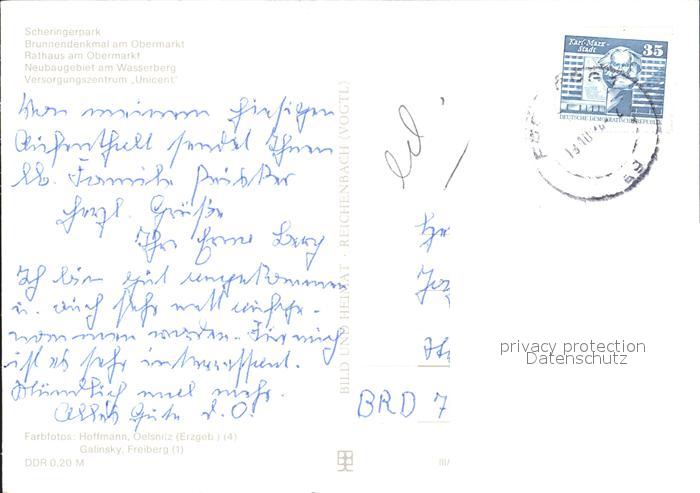 Scheringerpark
Brunnendenkmal am Obermarkt
Rathaus am Obermarkt
Neubaugebiet am Wasserberg
Versorgungszentrum „Unicent"
Von meinem hiesigen
Aufenthalt sendet Ihnen
lb. Familie
herzl. Grüße
Ihr Erna Berg
Ich bin gut angekommen
u. auch sehr nett aufge-
nommen worden. Für mich
ist es sehr interessant.
Mündlich mal mehr.
Alles Gute d. O.
Farbfotos: Hoffmann, Oelsnitz (Erzgeb.) (4)
Galinsky, Freiberg (1)
DDR 0,20 M
BILD UND HEIMAT · REICHENBACH (VOGTL)
III/
Karl-Marx-Stadt
35
DEUTSCHE DEMOKRATISCHE REPUBLIK
BRD 7
privacy protection
Datenschutz